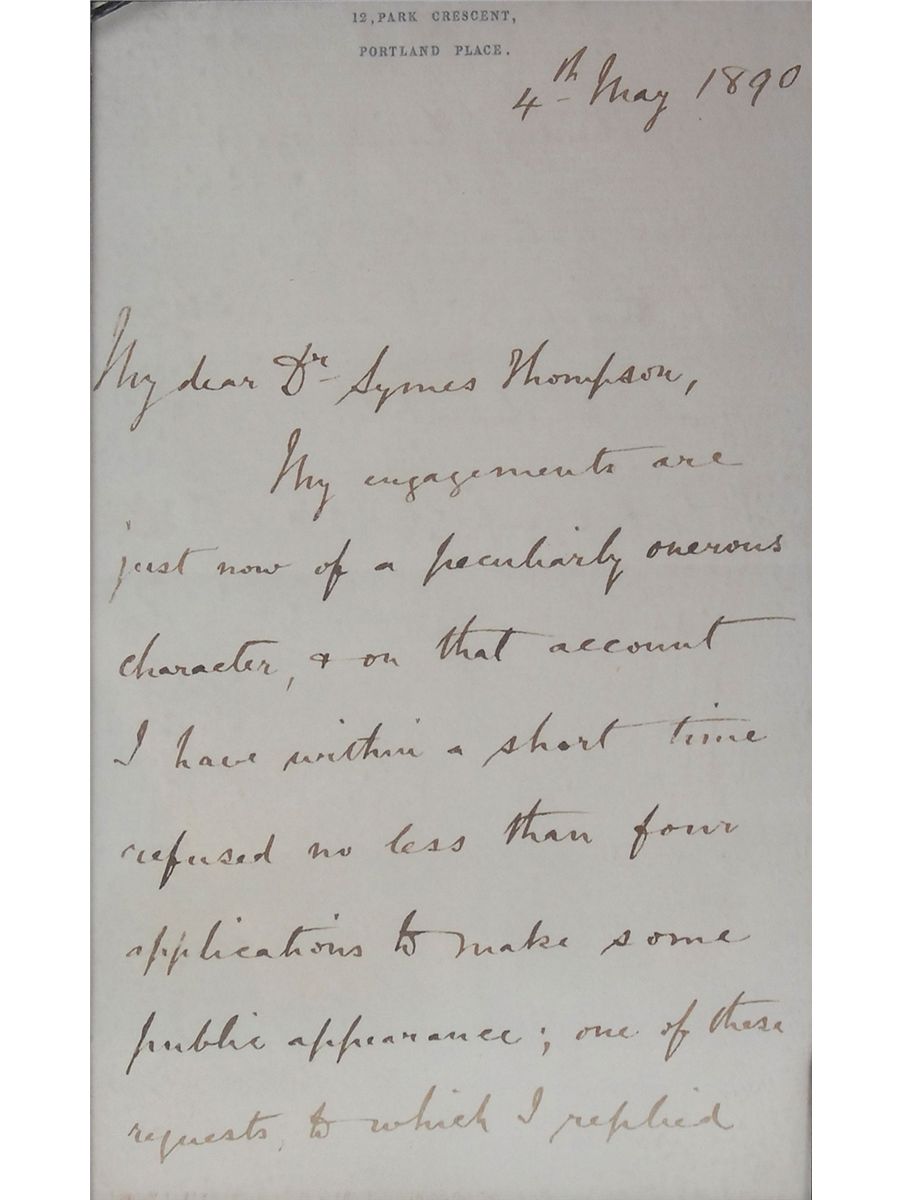 12, PARK CRESCENT,
PORTLAND PLACE.
4th May 1890
My dear Dr Symes Thompson,
My engagements are
just now of a peculiarly onerous
character, & on that account
I have within a short time
refused no less than four
applications to make some
public appearance; one of these
requests, to which I replied